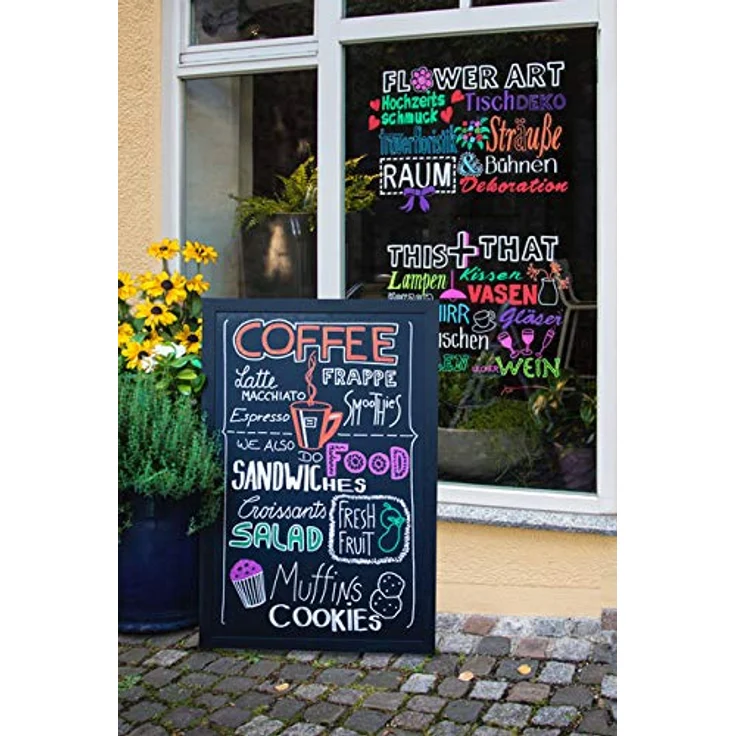 FLOWER ART
Hochzeits
schmuck
TischDEKO
trauerfloristik
Sträuße
RAUM
& Bühnen
Dekoration
THIS + THAT
Lampen
Kissen
VASEN
IRR
Gläser
schen
EN
WEIN
COFFEE
Latte
MACCHIATO
FRAPPE
Espresso
SMOOTHIES
WE ALSO
DO
FOOD
SANDWICHES
Croissants
SALAD
FRESH
FRUIT
MUFFINS
COOKIES